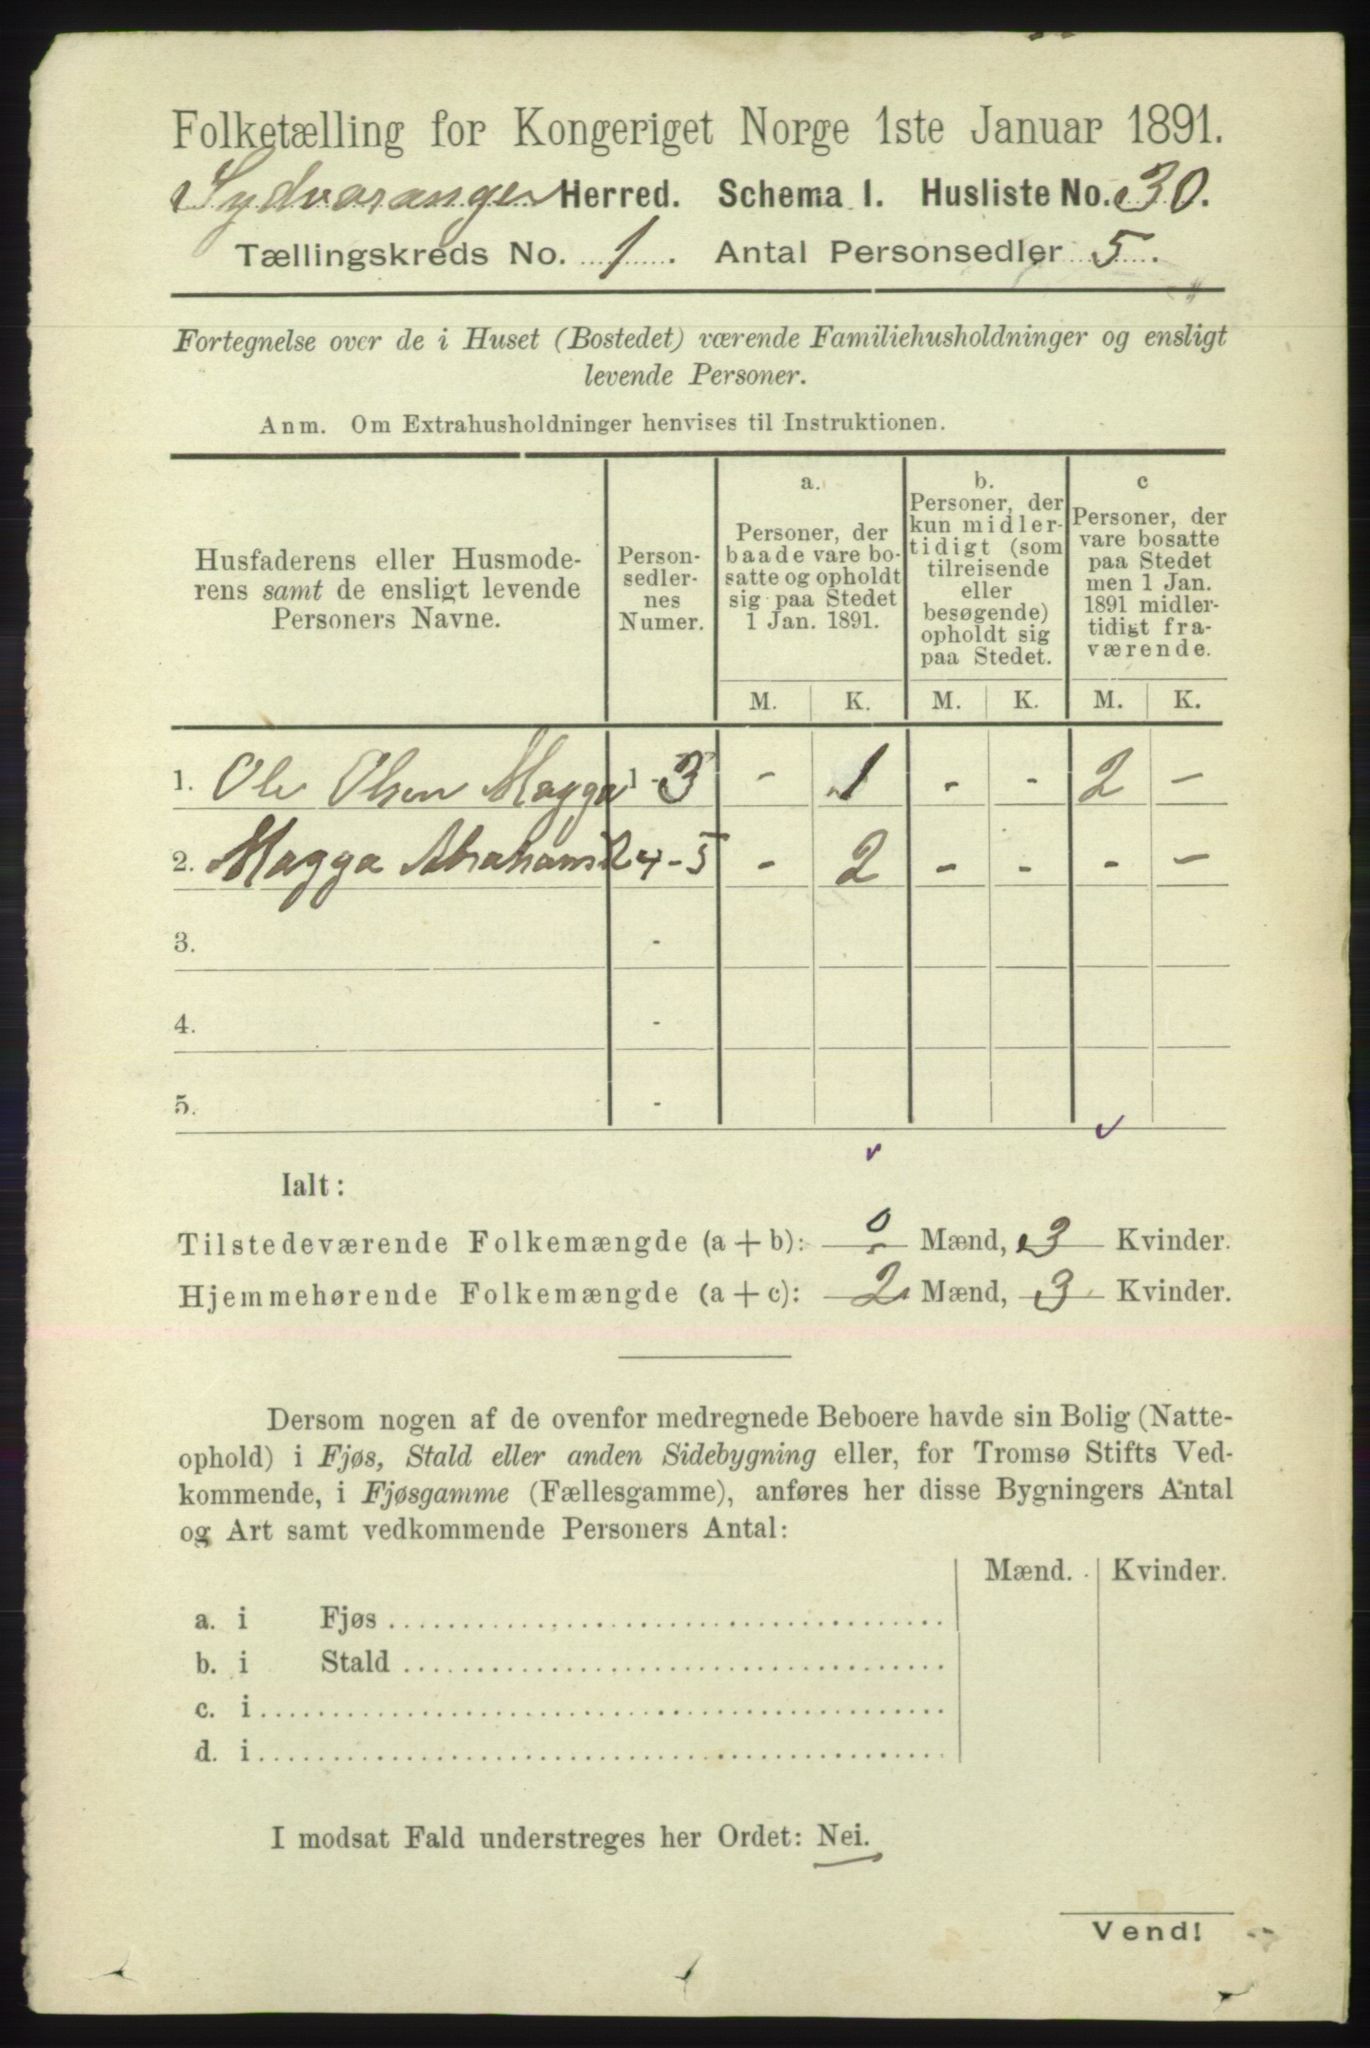 Folketælling for Kongeriget Norge 1ste Januar 1891.
Sydvaranger Herred. Schema I. Husliste No. 30.
Tællingskreds No. 1. Antal Personsedler 5.
Fortegnelse over de i Huset (Bostedet) værende Familiehusholdninger og ensligt
levende Personer.
Anm. Om Extrahusholdninger henvises til Instruktionen.
Husfaderens eller Husmode-
rens samt de ensligt levende
Personers Navne.
Person-
sedler-
nes
Numer.
a.
Personer, der
baade vare bo-
satte og opholdt
sig paa Stedet
1 Jan. 1891.
b.
Personer, der
kun midler-
tidigt (som
tilreisende
eller
besøgende)
opholdt sig
paa Stedet.
c
Personer, der
vare bosatte
paa Stedet
men 1 Jan.
1891 midler-
tidigt fra-
værende.
M. K. M. K. M. K.
1. Ole Olsen Magga 1 - 3 - 1 - - 2 -
2. Magga 4 - 5 - 2 - - - -
3. -
4. -
5. -
Ialt:
Tilstedeværende Folkemængde (a + b): 0 Mænd, 3 Kvinder.
Hjemmehørende Folkemængde (a + c): 2 Mænd, 3 Kvinder.
Dersom nogen af de ovenfor medregnede Beboere havde sin Bolig (Natte-
ophold) i Fjøs, Stald eller anden Sidebygning eller, for Tromsø Stifts Ved-
kommende, i Fjøsgamme (Fællesgamme), anføres her disse Bygningers Antal
og Art samt vedkommende Personers Antal:
Mænd. Kvinder.
a. i Fjøs
b. i Stald
c. i
d. i
I modsat Fald understreges her Ordet: Nei.
Vend!